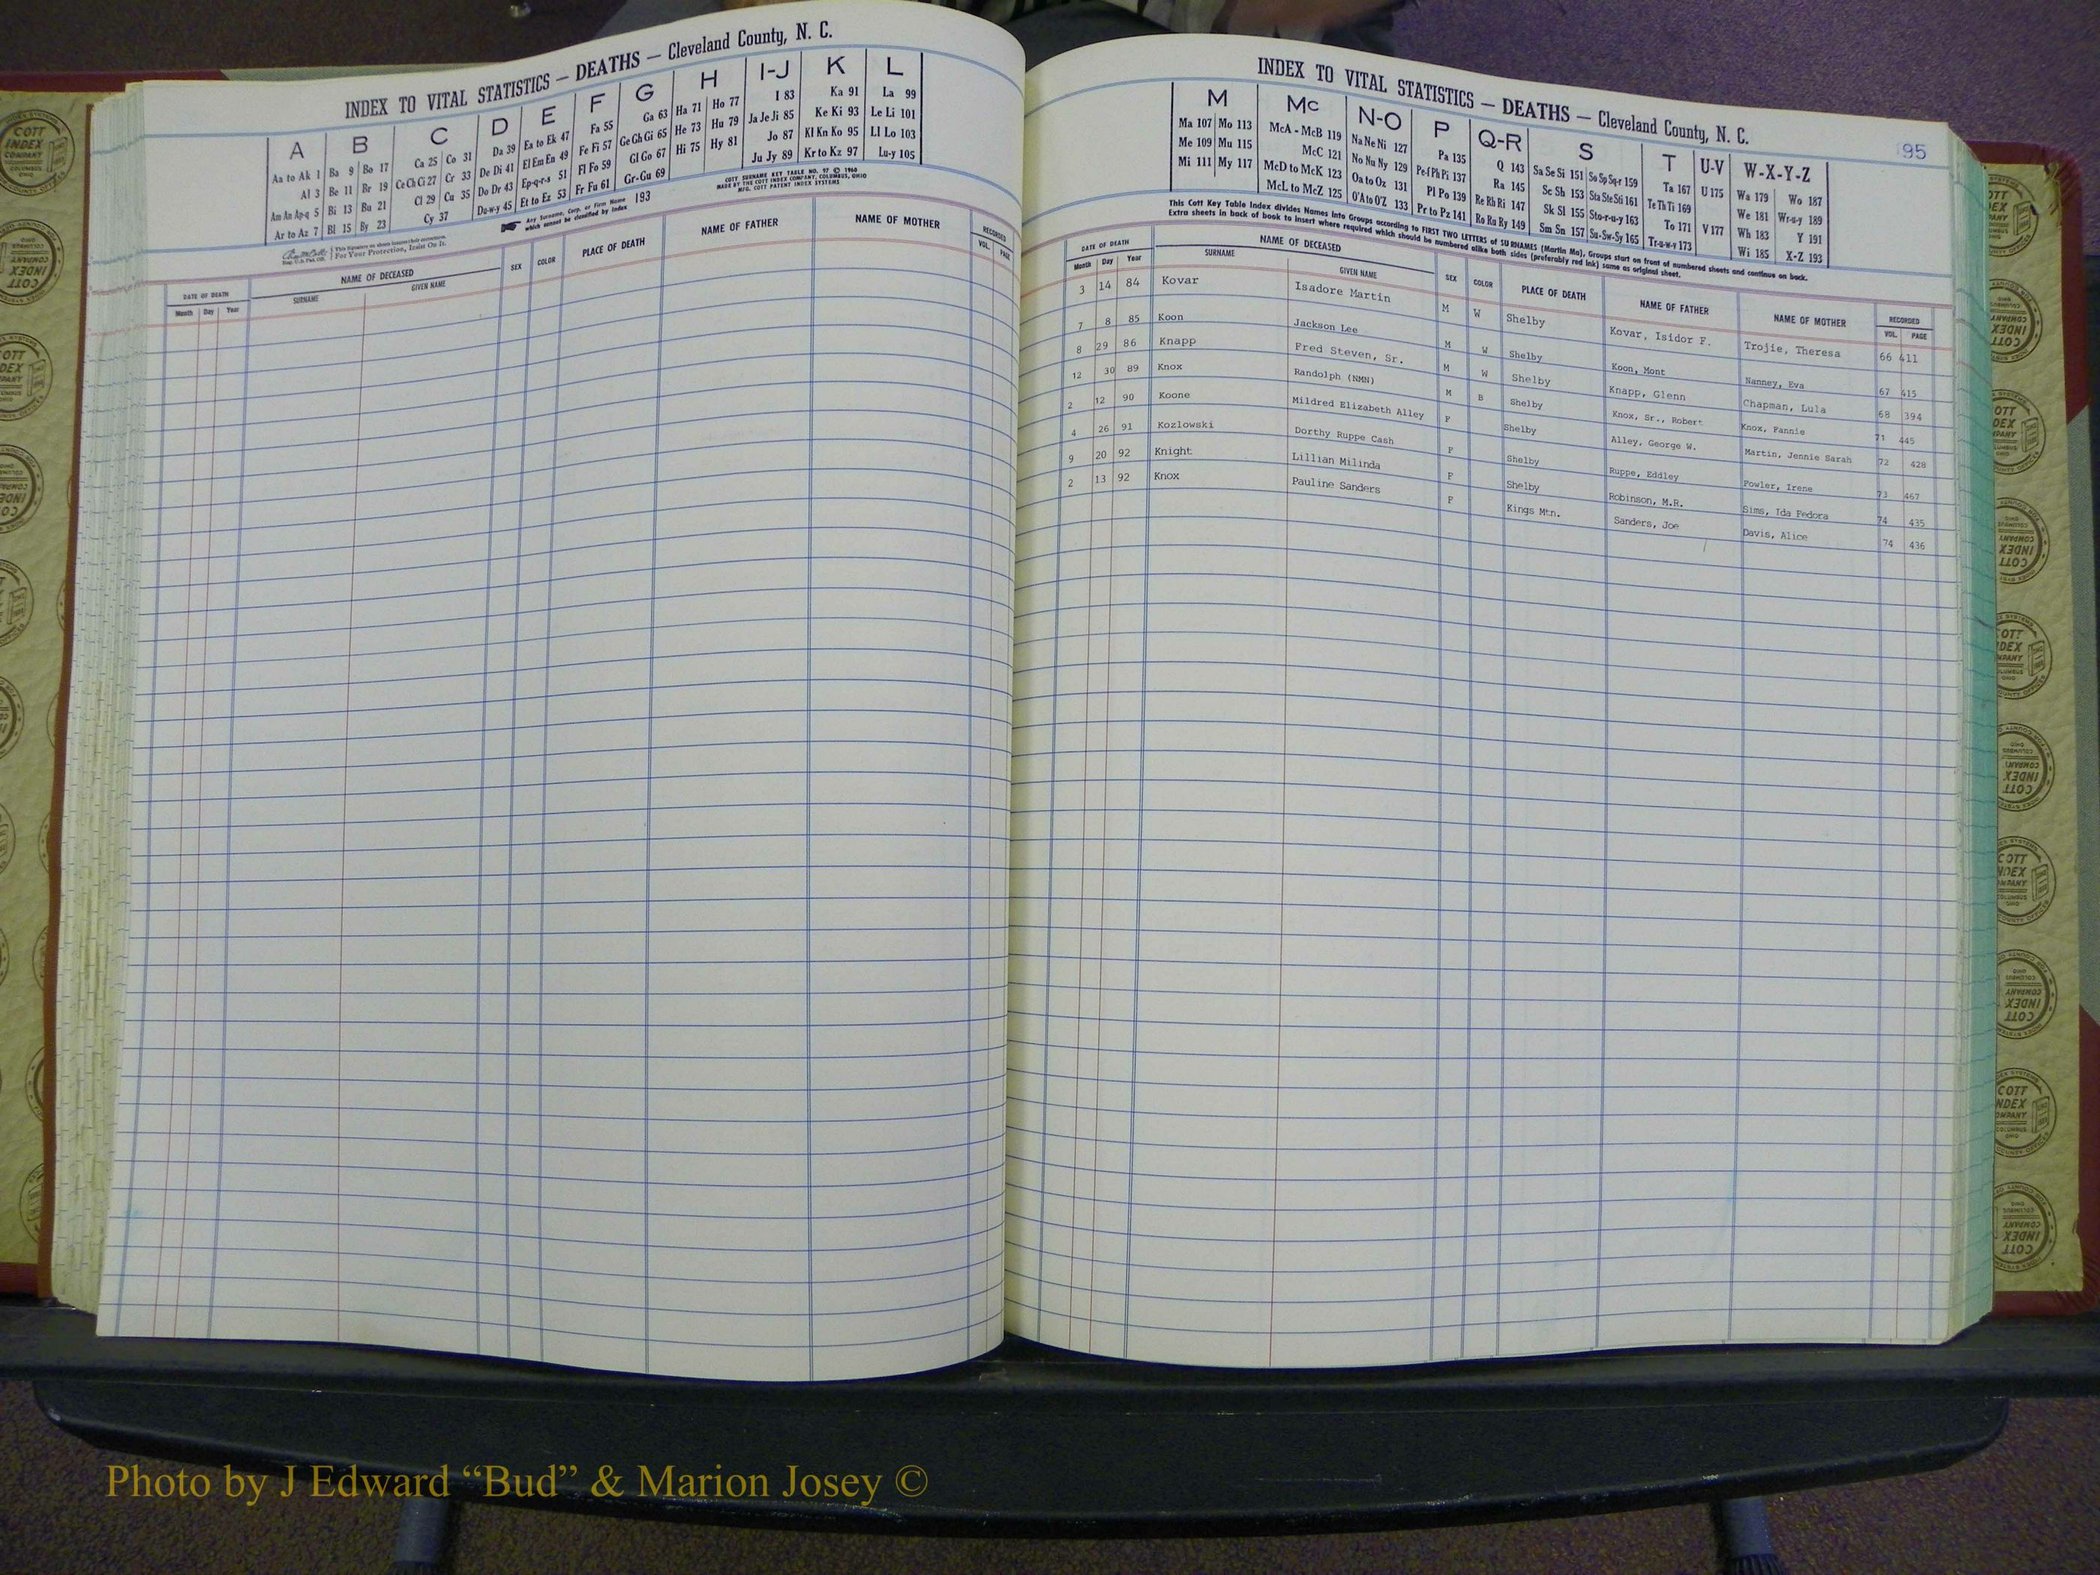 INDEX TO VITAL STATISTICS — DEATHS — Cleveland County, N. C.
A B C D E F G H I-J K L
Aa to Ak 1 Ba 9 Bo 17 Ca 25 Co 31 Da 39 Ea to Ek 47 Fa 55 Ga 63 Ha 71 Ho 77 I 83 Ka 91 La 99
Al 3 Be 11 Br 19 Ce Ch Ci 27 Cr 33 De Di 41 El Em En 49 Fe Fi 57 Ge Gh Gi 65 He 73 Hu 79 Ja Je Ji 85 Ke Ki 93 Le Li 101
Am An Ap-q 5 Bi 13 Bu 21 Cl 29 Cu 35 Do Dr 43 Ep-q-r-s 51 Fl Fo 59 Gl Go 67 Hi 75 Hy 81 Jo 87 Kl Kn Ko 95 Ll Lo 103
Ar to Az 7 Bl 15 By 23 Cy 37 Du-w-y 45 Et to Ez 53 Fr Fu 61 Gr-Gu 69 Ju Jy 89 Kr to Kz 97 Lu-y 105
This Signature on sheets insures their correctness.
For Your Protection, Insist On It.
Any Surname, Corp. or Firm Name which cannot be classified by Index 193
COTT SURNAME KEY TABLE NO. 97 © 1960
MADE BY THE COTT INDEX COMPANY, COLUMBUS, OHIO
MFG. COTT PATENT INDEX SYSTEMS
DATE OF DEATH NAME OF DECEASED SEX COLOR PLACE OF DEATH NAME OF FATHER NAME OF MOTHER RECORDED
Month Day Year SURNAME GIVEN NAME VOL. PAGE
INDEX TO VITAL STATISTICS — DEATHS — Cleveland County, N. C.
95
M Mc N-O P Q-R S T U-V W-X-Y-Z
Ma 107 Mo 113 McA - McB 119 Na Ne Ni 127 Pa 135 Q 143 Sa Se Si 151 So Sp Sq-r 159 Ta 167 U 175 Wa 179 Wo 187
Me 109 Mu 115 McC 121 No Nu Ny 129 Pe-f Ph Pi 137 Ra 145 Sc Sh 153 Sta Ste Sti 161 Te Th Ti 169 We 181 Wr-u-y 189
Mi 111 My 117 McD to McK 123 Oa to Oz 131 Pl Po 139 Re Rh Ri 147 Sk Sl 155 Sto-r-u-y 163 To 171 V 177 Wh 183 Y 191
McL to McZ 125 O'A to O'Z 133 Pr to Pz 141 Ro Ru Ry 149 Sm Sn 157 Su-Sw-Sy 165 Tr-u-w-y 173 Wi 185 X-Z 193
This Cott Key Table Index divides Names into Groups according to FIRST TWO LETTERS of SURNAMES (Martin Ma), Groups start on front of numbered sheets and continue on back.
Extra sheets in back of book to insert where required which should be numbered alike both sides (preferably red ink) same as original sheet.
DATE OF DEATH NAME OF DECEASED SEX COLOR PLACE OF DEATH NAME OF FATHER NAME OF MOTHER RECORDED
Month Day Year SURNAME GIVEN NAME VOL. PAGE
3 14 84 Kovar Isadore Martin M W Shelby Kovar, Isidor F. Trojie, Theresa 66 411
7 8 85 Koon Jackson Lee M W Shelby Koon, Mont Nanney, Eva 67 415
8 29 86 Knapp Fred Steven, Sr. M W Shelby Knapp, Glenn Chapman, Lula 68 394
12 30 89 Knox Randolph (NMN) M B Shelby Knox, Sr., Robert Knox, Fannie 71 445
2 12 90 Koone Mildred Elizabeth Alley F Shelby Alley, George W. Martin, Jennie Sarah 72 428
4 26 91 Kozlowski Dorthy Ruppe Cash F Shelby Ruppe, Eddley Fowler, Irene 73 467
9 20 92 Knight Lillian Milinda F Shelby Robinson, M.R. Sims, Ida Fedora 74 435
2 13 92 Knox Pauline Sanders F Kings Mtn. Sanders, Joe Davis, Alice 74 436
COTT INDEX COMPANY COLUMBUS OHIO
Photo by J Edward “Bud” & Marion Josey ©